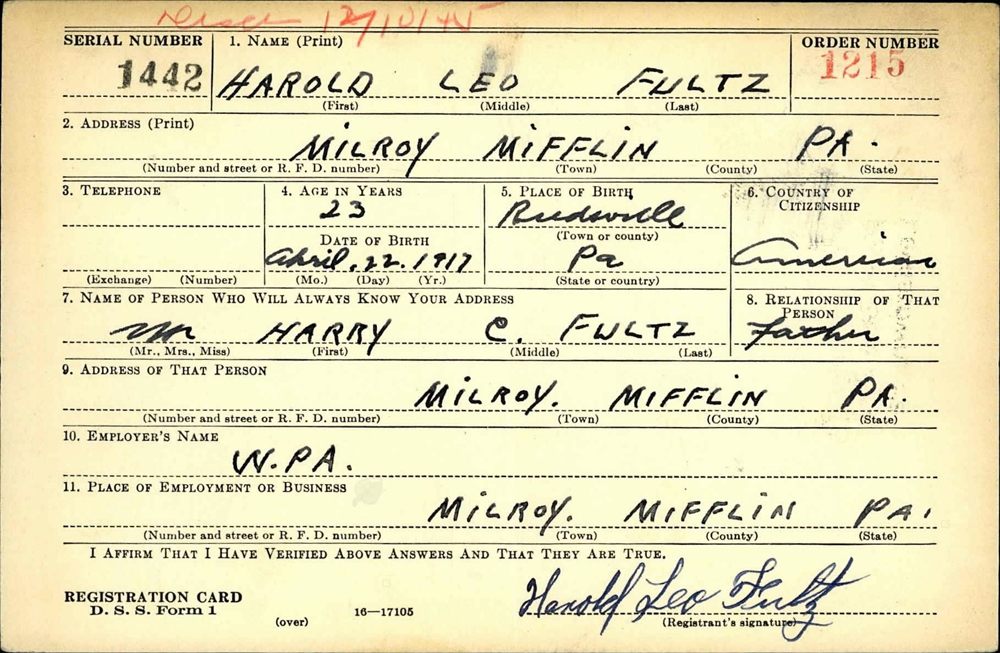 Disch 12/10/45
SERIAL NUMBER 1. NAME (Print) ORDER NUMBER
1442 HAROLD LEO FULTZ 1215
(First) (Middle) (Last)
2. ADDRESS (Print)
MILROY MIFFLIN PA.
(Number and street or R. F. D. number) (Town) (County) (State)
3. TELEPHONE 4. AGE IN YEARS 5. PLACE OF BIRTH 6. COUNTRY OF
CITIZENSHIP
23 Reedsville
DATE OF BIRTH (Town or county)
April. 22. 1917 Pa American
(Exchange) (Number) (Mo.) (Day) (Yr.) (State or country)
7. NAME OF PERSON WHO WILL ALWAYS KNOW YOUR ADDRESS 8. RELATIONSHIP OF THAT
PERSON
Mr HARRY C. FULTZ Father
(Mr., Mrs., Miss) (First) (Middle) (Last)
9. ADDRESS OF THAT PERSON
MILROY. MIFFLIN PA.
(Number and street or R. F. D. number) (Town) (County) (State)
10. EMPLOYER'S NAME
W.PA.
11. PLACE OF EMPLOYMENT OR BUSINESS
MILROY. MIFFLIN PA.
(Number and street or R. F. D. number) (Town) (County) (State)
I AFFIRM THAT I HAVE VERIFIED ABOVE ANSWERS AND THAT THEY ARE TRUE.
REGISTRATION CARD
D. S. S. Form 1 16—17105 Harold Leo Fultz
(over) (Registrant's signature)